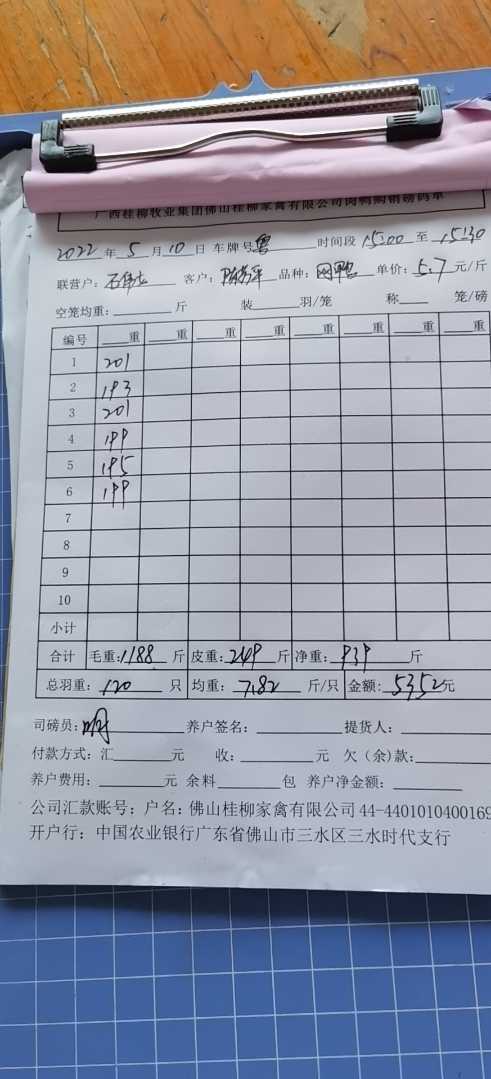 广西桂柳牧业集团佛山桂柳家禽有限公司肉鸭购销磅码单
2022 年 5 月 10 日 车牌号粤 时间段 15:00 至 15:30
联营户: 客户: 品种: 单价: 5.7 元/斤
空笼均重: 斤 装 羽/笼 称 笼/磅
编号 重 重 重 重 重 重 重 重
1 201
2 193
3 201
4 199
5 195
6 199
7
8
9
10
小计
合计 毛重: 1188 斤 皮重: 249 斤 净重: 939 斤
总羽重: 120 只 均重: 7.82 斤/只 金额: 5352元
司磅员: 养户签名: 提货人:
付款方式: 汇 元 收: 元 欠(余)款:
养户费用: 元 余料 包 养户净金额:
公司汇款账号; 户名: 佛山桂柳家禽有限公司 44-4401010400169
开户行: 中国农业银行广东省佛山市三水区三水时代支行